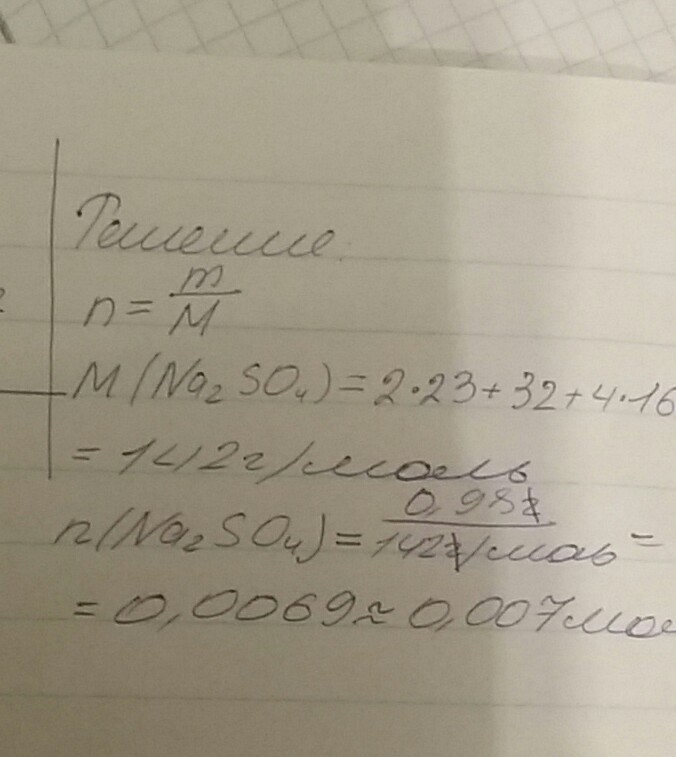 Решение:
n = m/M
M(Na₂SO₄) = 2·23 + 32 + 4·16
= 142 г/моль
n(Na₂SO₄) = 0,98г/142г/моль =
= 0,0069 ≈ 0,007 мол